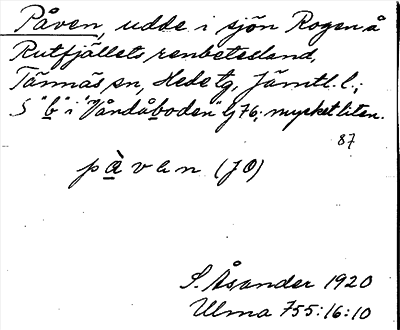 Påven, udde i sjön Rogen å
Rutfjällets renbetesland,
Tännäs sn, Hede tg, Jämtl. l.;
S "b" i "Våndåboden" G 76; mycket liten.
87
pàvan (JO)
S. Åsander 1920
Ulma 755:16:10